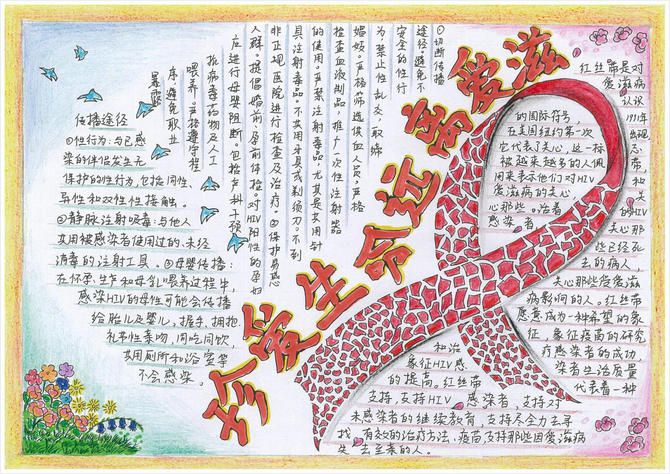 珍爱生命远离爱滋
①切断传播
途径。避免不
安全的性行
为，禁止性乱交，取缔
娼妓。严格筛选供血人员，严格
检查血液制品，推广一次性注射器
的使用。严禁注射毒品，尤其是共用针
具注射毒品。不共用牙具或剃须刀。不到
非正规医院进行检查及治疗。②保护易感
人群。提倡婚前、孕前体检。对HIV阳性的孕妇
应进行母婴阻断。包括产科干预
抗病毒药物及人工
喂养。严格遵守程
序，避免职业
暴露
传播途径
①性行为：与已感
染的伴侣发生无
保护的性行为，包括同性、
异性和双性性接触。
②静脉注射吸毒：与他人
共用被感染者使用过的、未经
消毒的注射工具。③母婴传播：
在怀孕、生产和母乳喂养过程中，
感染HIV的母性可能会传播
给胎儿及婴儿。握手，拥抱
礼节性亲吻，同吃同饮，
共用厕所和浴室等
不会感染。
红丝带是对
爱滋病
认识
的国际符号，1991年
在美国纽约第一次出现
它代表了关心，这一标志
被越来越多的人佩带，
用来表示他们对HIV和
爱滋病的关心
心那些。活着的HIV
感染者，关心那
些已经死
去的病人，
关心那些受爱滋
病影响的人。红丝带
愿意成为一种希望的象
征，象征疫苗的研究
和治疗感染者的成功，
象征HIV感染者生活质量
的提高。红丝带代表着一种
支持，支持HIV感染者，支持对
未感染者的继续教育，支持尽全力去寻
找有效的治疗方法、疫苗，支持那些因爱滋病
失去至亲的人。